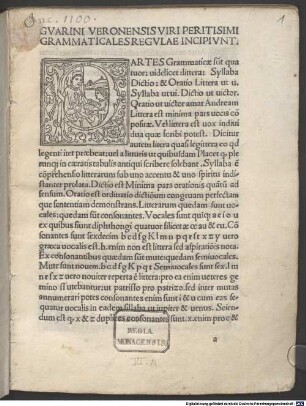 Inc. 1100.
1
GVARINI VERONENSIS VIRI PERITISIMI
GRAMMATICALES REGVLAE INCIPIVNT.
PARTES Grammaticæ sūt qua
tuor: uidelicet littera: Syllaba
Dictio: & Oratio Littera ut u.
Syllaba ut ui. Dictio ut uictor.
Oratio ut uictor amat Andream
Littera est minima pars uocis cō
positæ. Vel littera est uox indiui
dua quæ scribi potest. Dicitur
autem littera quasi legitera eo qd
legenti iter præbeat: uel a lituris ut quibusdam Placet q̃ ple
runq; in ceratis tabulis antiqui scribere solebant. Syllaba ē
cōprehensio litterarum sub uno accentu & uno spiritu indis
stanter prolata. Dictio est Minima pars orationis quātū ad
sensum. Oratio est ordinatio dictionū congruam perfectam
que sententiam demonstrans. Litterarum quædam sunt uo
cales: quædam sūt consonantes. Vocales sunt quīq; a e i o u
ex quibus fiunt diphthongi quatuor silicet æ œ au & eu. Cō
sonantes sunt sexdecim b c d f g K l m n p q r s t x z y uero
græca uocalis est. h. enim non est littera sed aspirationis nota.
Ex consonantibus quædam sūt mutæ quædam semiuocales.
Mutæ sunt nouem. b c d f g K p q t Semiuocales sunt sex. l m
n r s x z uero nouiter reperta ē littera: pro ea enim ueteres ge
mino ss utebantur: ut patrisso pro patrizo. sed inter mutas
annumerari potest consonantes enim sunt i & u cum eas se
quatur uocalis in eadem sillaba ut iupiter & uenus. Scien
dum est q̃ x & z duplices consonantes sunt. x enim pro c &
a
REGIA
MONACENSIS